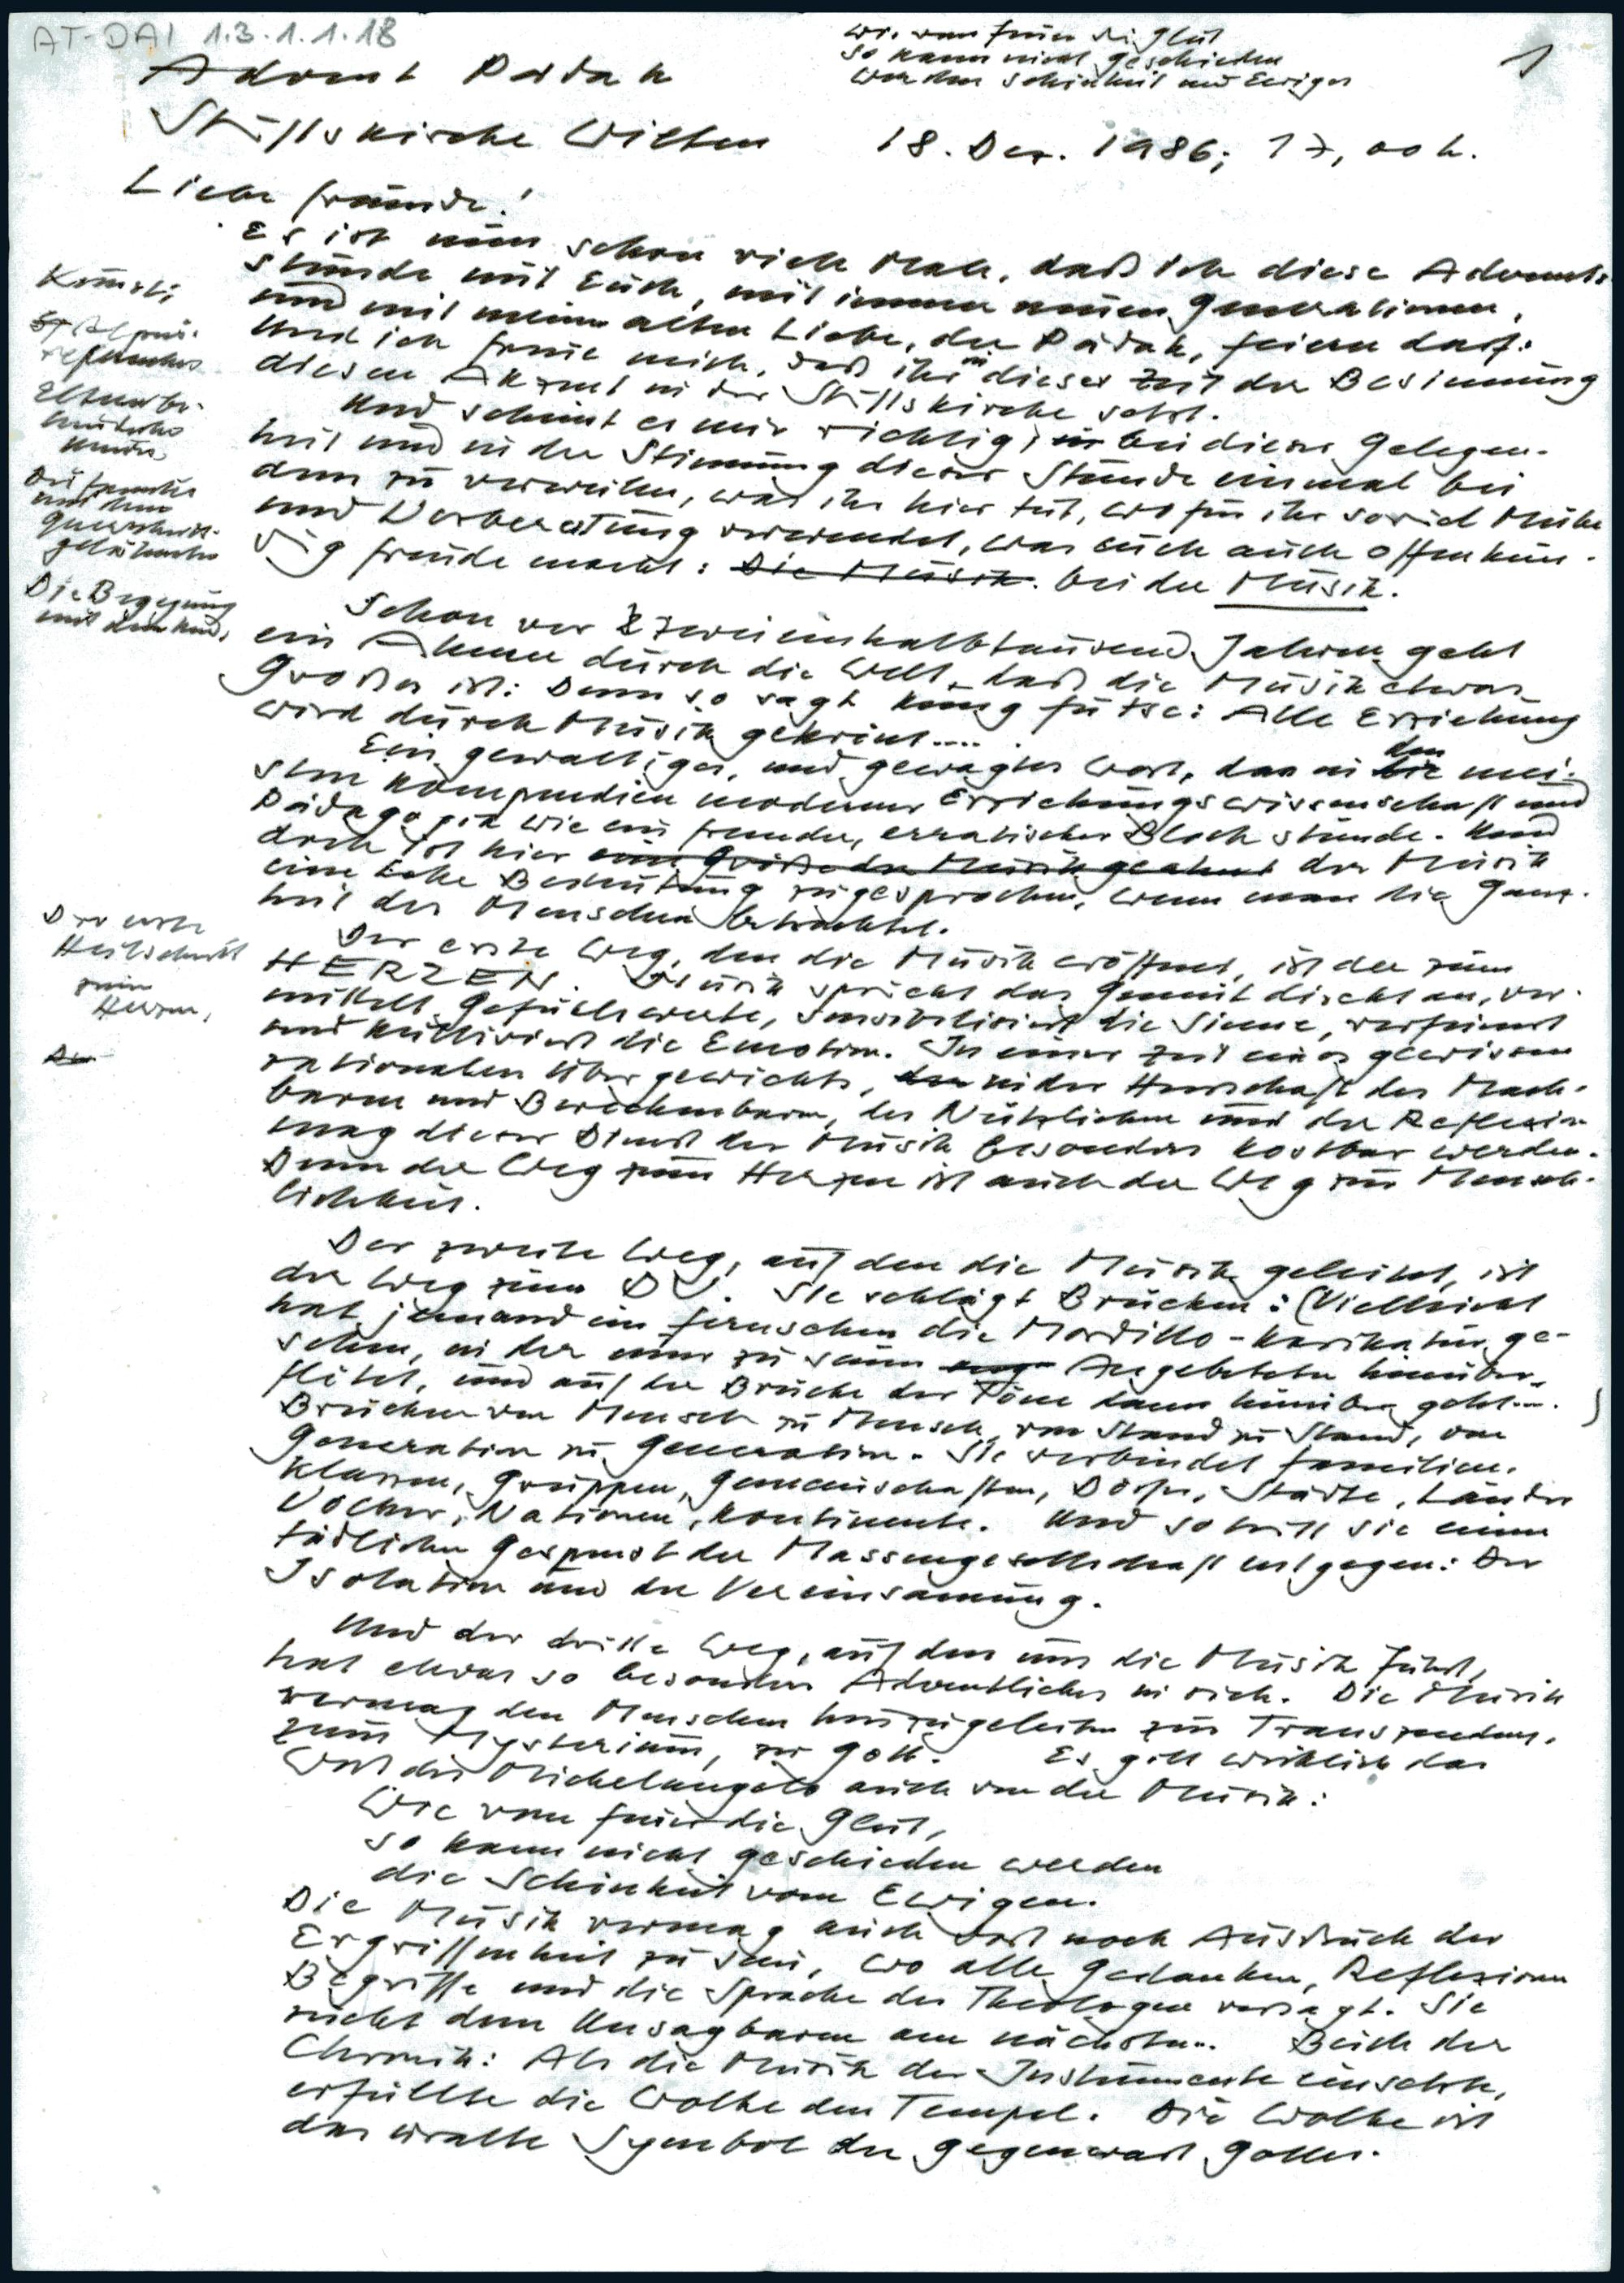 AT-DAI 1.3.1.1.18
Wie vom Feuer die Glut
so kann nicht geschieden
werden Schönheit und Ewiges
1
Advent Pädak
Stiftskirche Wilten 18. Dez. 1986; 17,00 h.
Liebe Freunde!
Es ist nun schon viele Male, daß ich diese Advents-
stunde mit Euch, mit immer neuen Generationen,
und mit meiner alten Liebe, der Pädak, feiern darf.
Und ich freue mich, daß ihr in dieser Zeit der Besinnung
diesen Akzent in der Stiftskirche setzt.
Und scheint es mir richtig, in bei dieser Gelegen-
heit und in der Stimmung dieser Stunde einmal bei
dem zu verweilen, was ihr hier tut, wofür ihr soviel Mühe
und Vorbereitung verwendet, was euch auch offenkun-
dig Freude macht: Die Musik. bei der Musik.
Schon vor zweieinhalbtausend Jahren geht
ein Ahnen durch die Welt, daß die Musik etwas
Großes ist: Denn so sagt Kung futse: Alle Erziehung
wird durch Musik gekrönt....
Ein gewaltiges, und gewagtes Wort, das in die den mei-
sten Kompendien moderner Erziehungswissenschaft und
Pädagogik wie ein fremder, erratischer Block stünde. Und
doch ist hier eine Größe der Musik geahnt der Musik
eine Bedeutung zugesprochen, wenn man die Ganz-
heit des Menschen betrachtet.
Der erste Weg, den die Musik eröffnet, ist der zum
HERZEN. Musik spricht das Gemüt direkt an, ver-
mittelt Gefühlswerte, sensibilisiert die Sinne, verfeinert
und kultiviert die Emotion. In einer Zeit eines gewissen
rationalen Übergewichts, in der Herrschaft des Mach-
baren und Berechenbaren, des Nützlichen und der Reflexion
mag dieser Dienst der Musik besonders kostbar werden.
Denn der Weg zum Herzen ist auch der Weg zur Mensch-
lichkeit.
Der zweite Weg, auf den die Musik geleitet, ist
der Weg zum DU. Sie schlägt Brücken: (Vielleicht
hat jemand im Fernsehen die Mordillo-Karikatur ge-
sehen, in der einer zu seiner Angebeteten hinüber-
flötet, und auf der Brücke der Töne dann hinüber geht....)
Brücken von Mensch zu Mensch, von Stand zu Stand, von
Generation zu Generation. Sie verbindet Familien,
Klassen, Gruppen, Gemeinschaften, Dörfer, Städte, Länder
Völker, Nationen, Kontinente. Und so tritt sie einem
tödlichen Gespenst der Massengesellschaft entgegen: Der
Isolation und der Vereinsamung.
Und der dritte Weg, auf den uns die Musik führt,
hat etwas so besonders Adventliches in sich. Die Musik
vermag den Menschen hinzugeleiten zur Transzendenz,
zum Mysterium, zu Gott. Es gilt wirklich das
Wort des Michelangelo auch von der Musik:
Wie vom Feuer die Glut,
so kann nicht geschieden werden
die Schönheit vom Ewigen.
Die Musik vermag auch dort noch Ausdruck der
Ergriffenheit zu sein, wo alle Gedanken, Reflexionen
Begriffe und die Sprache der Theologen versagt. Sie
rückt dem Unsagbaren am nächsten. Buch der
Chronik: Als die Musik der Instrumente einsetzte,
erfüllte die Wolke den Tempel. Die Wolke ist
das uralte Symbol der Gegenwart Gottes.
Die Begegnung
mit dem Kind,
Der erste
Heilschritt
zum
Herzen,